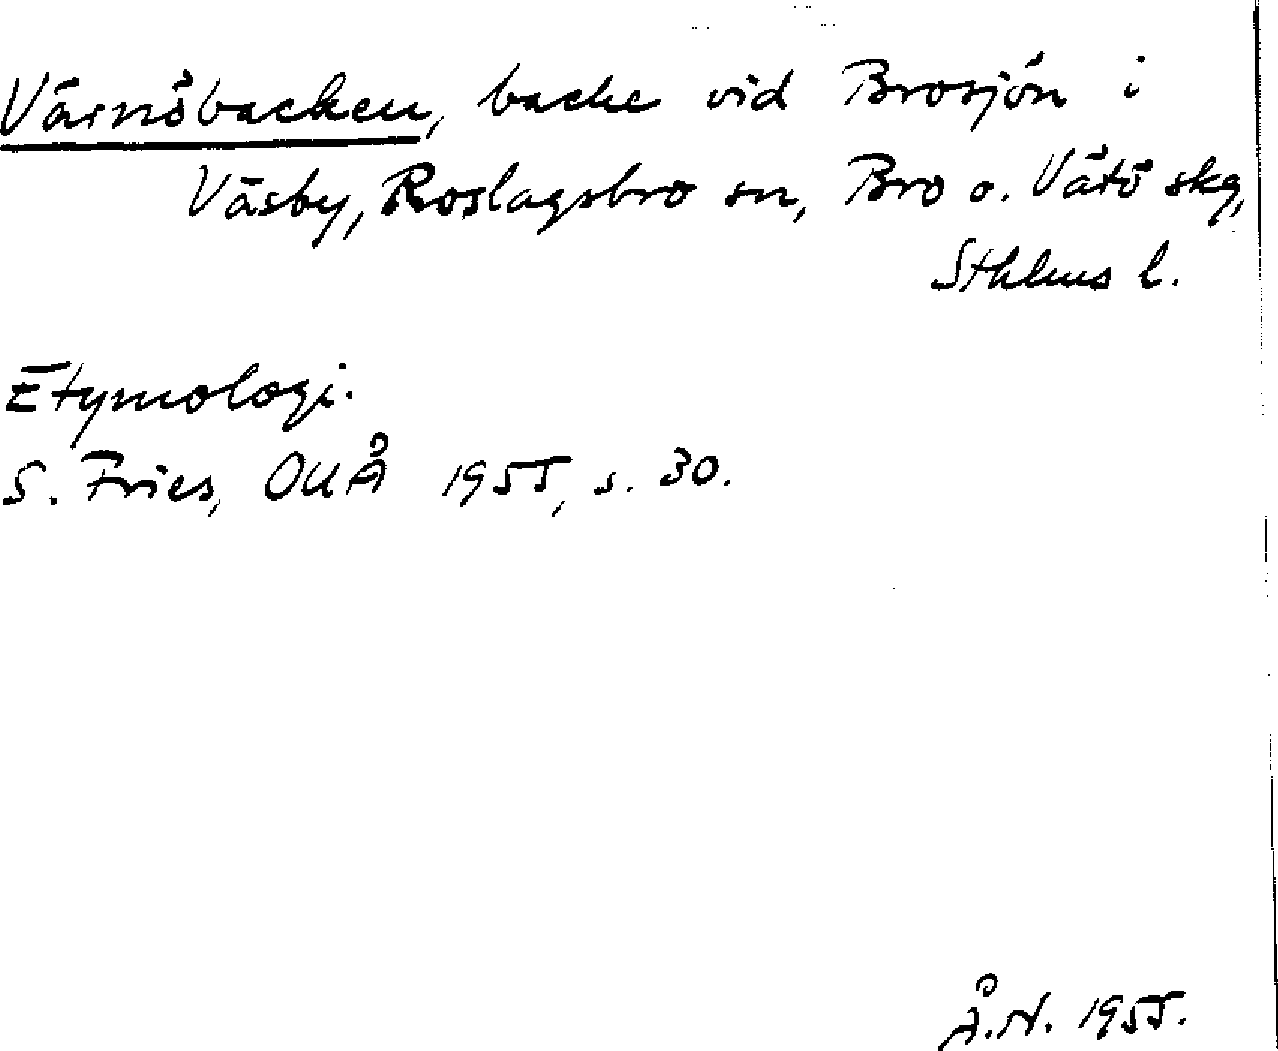 Värnöbacken, backe vid Brosjön i
Väsby, Roslagsbro sn, Bro o. Vätö skg,
Sthlms l.
Etymologi.
S. Fries, OUÅ 1955, s. 30.
Å.N. 1955.